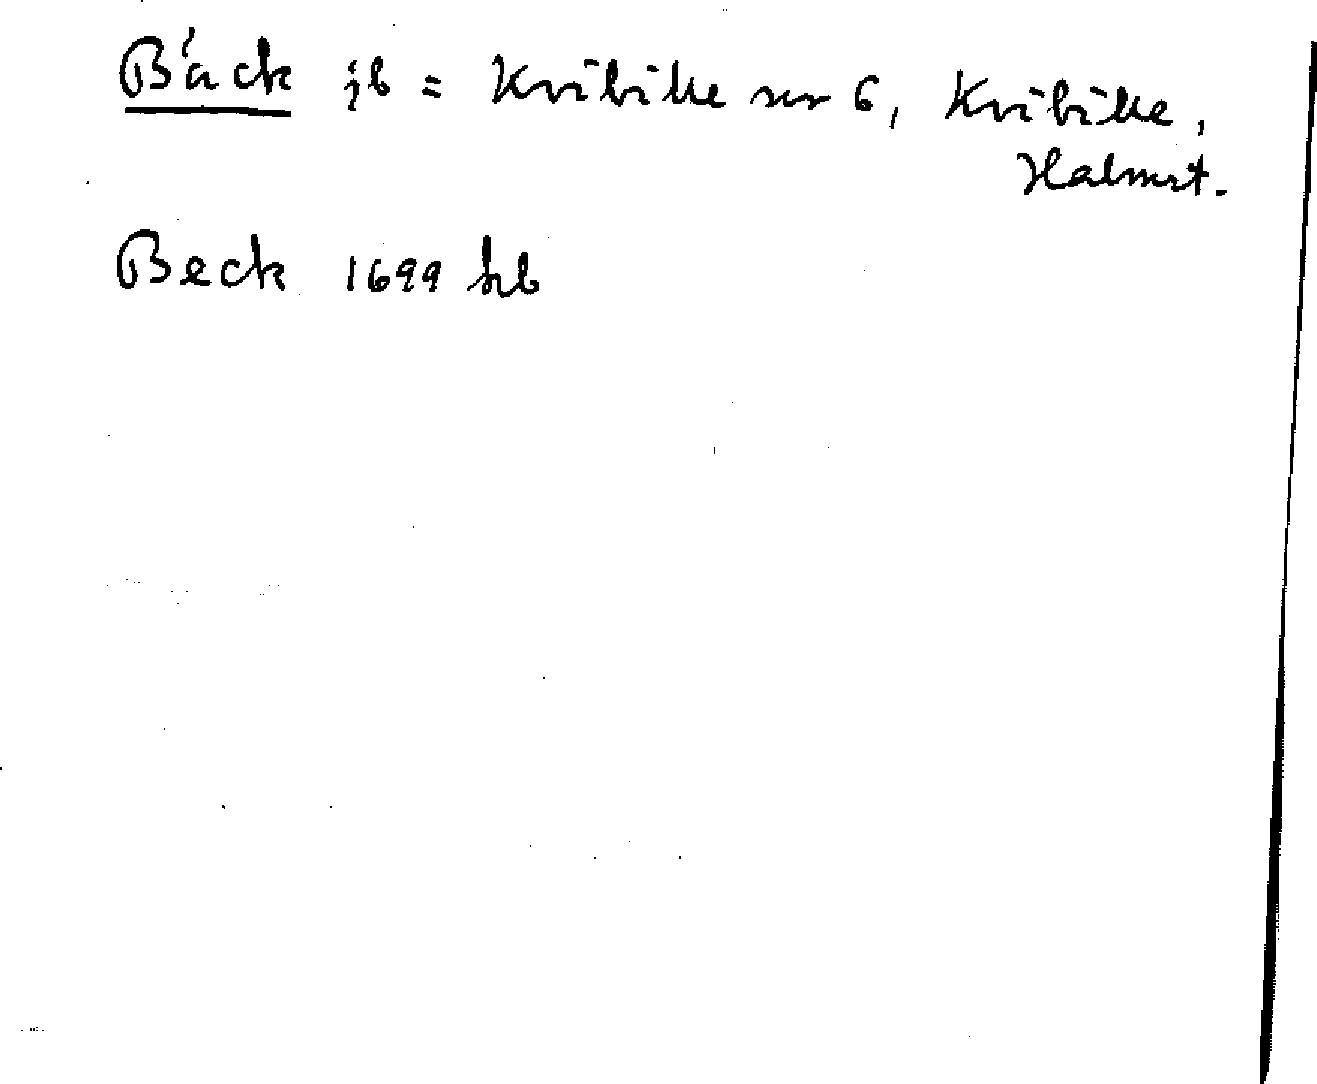 Bäck jb = Kvibille nr 6, Kvibille,
Halmst.
Beck 1699 hb